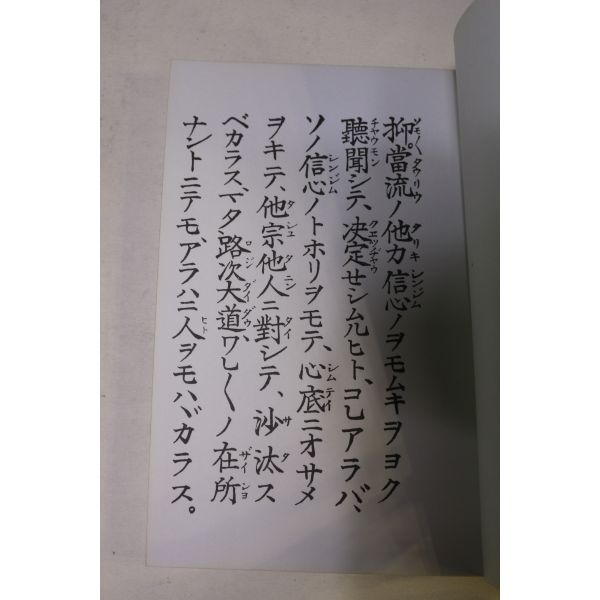 抑、當流ノ他力信心ノヲモムキヲヨク
聽聞シテ、决定せシムルヒト、コレアラバ、
ソノ信心ノトホリヲモテ、心底ニオサメ
ヲキテ、他宗他人ニ對シテ、沙汰ス
ベカラス、マタ路次大道、ワレ〱ノ在所
ナントニテモ、アラハニ人ヲモハヾカラス。